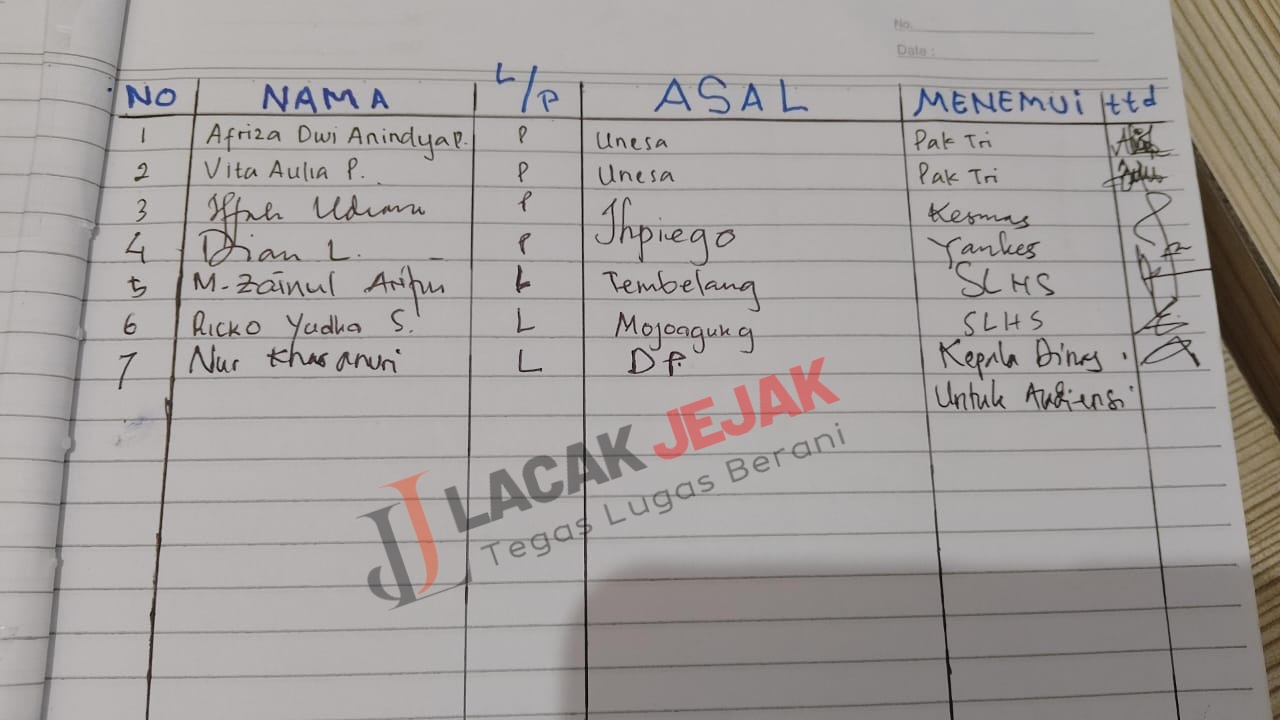 No.
Date :
NO NAMA L/P ASAL MENEMUI ttd
1 Afriza Dwi Anindya P. P Unesa Pak Tri
2 Vita Aulia P. P Unesa Pak Tri
3 P Jhpiego Kesmas
4 Dian L. P Yankes
5 M. Zainul Arifin L Tembelang SLHS
6 Ricko Yudha S. L Mojoagung SLHS
7 Nur Khasanuri L DP. Kepala Dinas
Untuk Audiensi
LACAK JEJAK
Tegas Lugas Berani